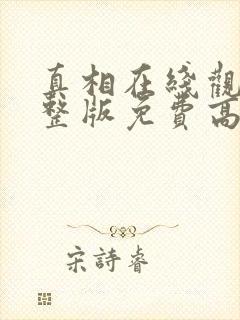 真相在线觀
整版免費高
宋詩睿